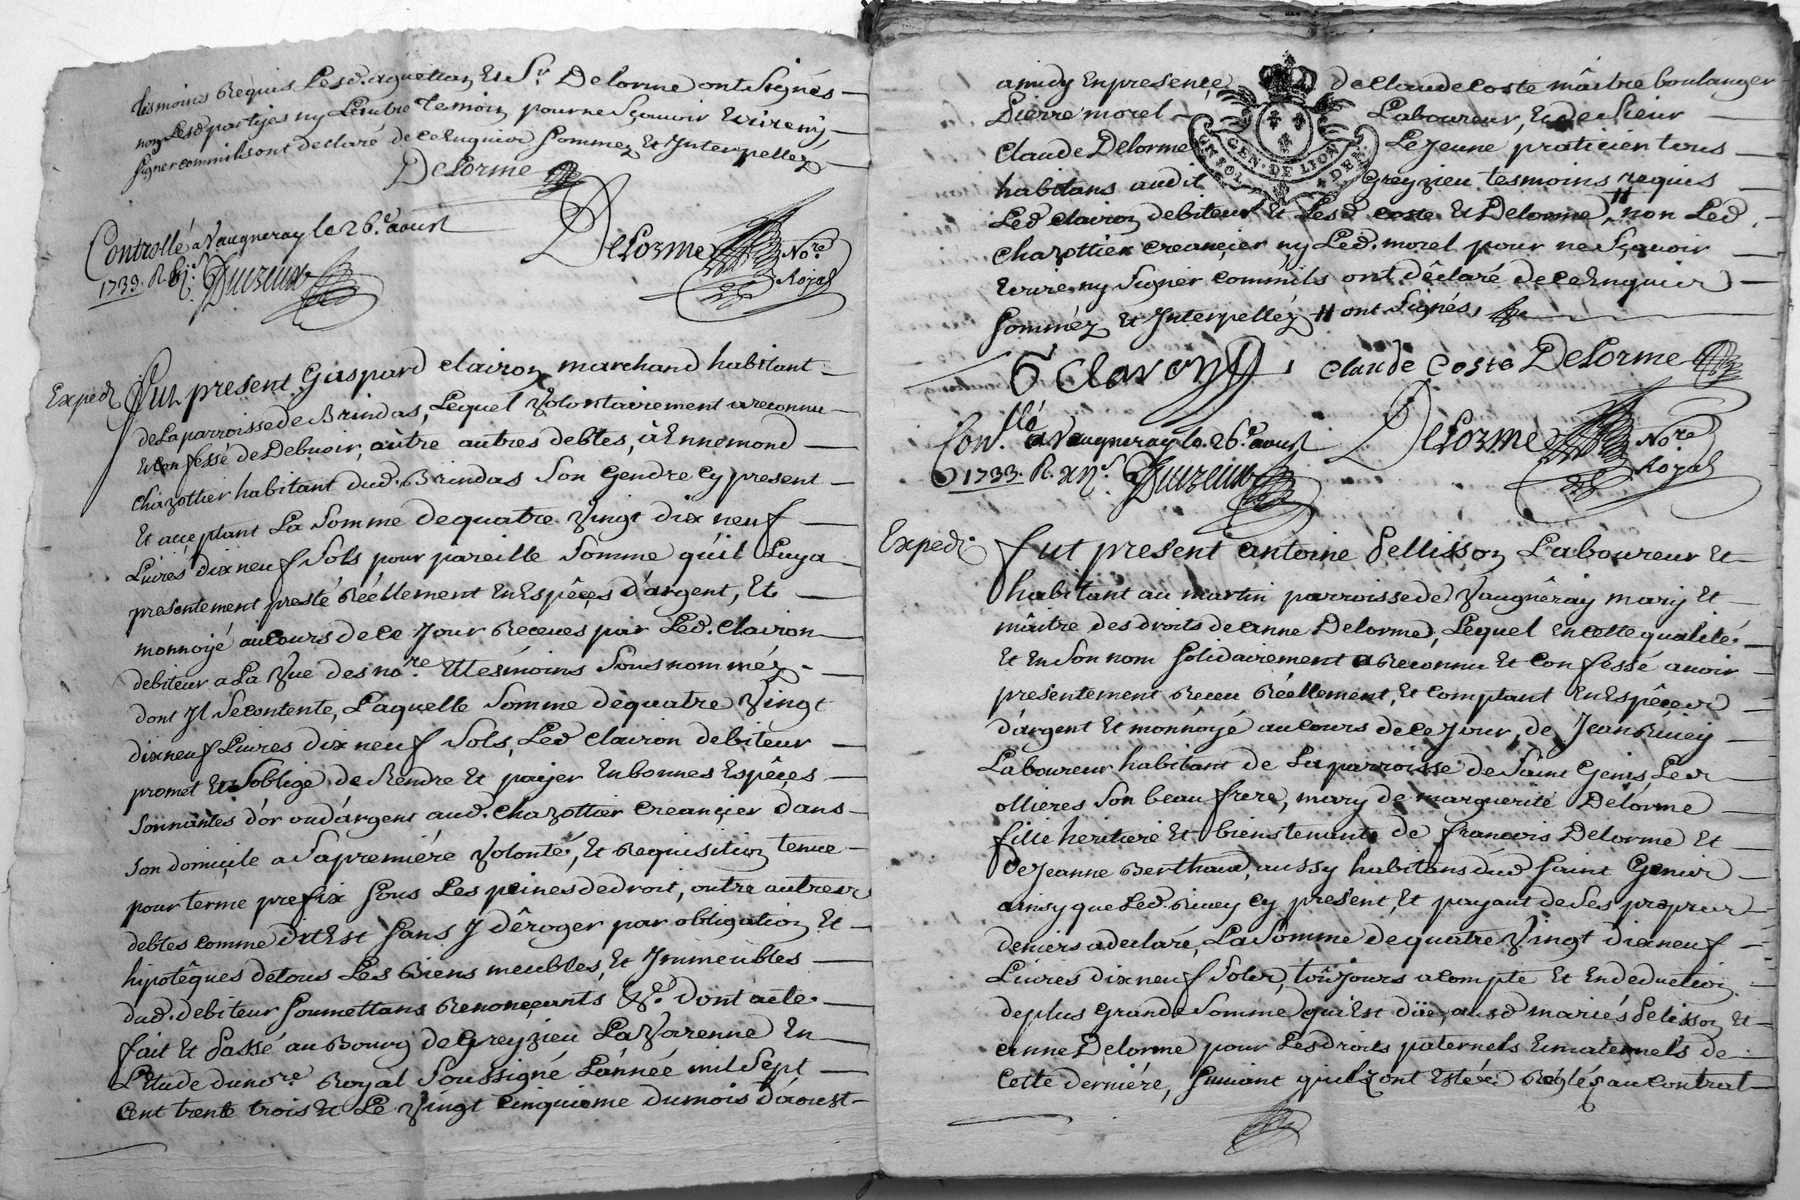 tesmoins Requis Lesd. aguettan Et Sr. Delorme ont Signés
non Lesd partyes ny Lautre Temoin pour ne Sçavoir Ecrire ny
Signer commils ont declaré de ce Enquis Sommez Et Interpellez
Delorme
Controllé a Vaugneray le 26e. aoust
1733. R.
Delorme Nore. Royal
Expedi
Fut present Gaspard Clairon marchand habitant
de La parroisse de Brindas, Lequel Volontairement a reconnu
Et Confessé de Debuoir, autre autres debtes, à Ennemond
Chazottier habitant dud. Brindas Son Gendre Cy present
Et acceptant La Somme de quatre Vingt dix neuf
Liures dix neuf Sols pour pareille Somme qu'il Luy a
presentement presté Réellement En Espêçes d'argent, Et
monnoyé au cours de Ce Jour Recues par Led. Clairon
debiteur a La Vüe des nore. Et tesmoins Sous nomméz
dont Il Se contente, Laquelle Somme de quatre Vingt
dix neuf Liures dix neuf Sols, Led Clairon debiteur
promet Et S'oblige de Rendre Et payer En bonnes Espêçes
Sonnantes d'or ou d'argent aud. Chazottier Creançier dans
Son domiçile a Sa première Volonté, Et Requisition tenue
pour terme prefix Sous Les peines de droit, outre autres
debtes comme dit Est Sans y dêroger par obligation Et
hipotêques de tous Les Biens meubles, Et Immeubles
dud. debiteur Soumettans Renonçeants &a. dont acte
fait Et Passé au Bourg de Greyzieu La Varenne En
L'Etude du nore. Royal Soussigné L'année mil Sept
Cent trente trois Et Le Vingt Cinquieme du mois d'aoust
a midy En presençe de Claude Coste mâitre boulanger
Pierre morel Laboureur, Et de Sieur
Claude Delorme Le Jeune praticien tous
habitans audit Greyzieu tesmoins requis
GEN. DE LION
Led Clairon debiteur Et Lesd Coste Et Delorme, H non Led
Chazottier Creançier ny Led. morel pour ne Sçauoir
Ecrire ny Signer commils ont dêclaré de ce Enquis
Somméz Et Interpelléz H ont Signés
G Clavon Claude Coste Delorme
Con.llé a Vaugneray le 26e. aoust
1733. R.
Delorme Nore Royal
Expedi.
Fut present antoine Pellisson Laboureur Et
habitant au martin parroisse de Vaugnêray mary Et
mâitre des droits de anne Delorme, Lequel En cette qualité
Et En Son nom Solidairement a Reconnu Et Confessé auoir
presentement Receu Réellement, Et Comptant En Espêçes
d'argent Et monnoyé au cours de Ce Jour, de Jean
Laboureur habitant de La parroisse de Saint Genis Les
ollieres Son beau frere, mary de marguerite Delorme
fille heritiere Et bienstenante de francois Delorme Et
de Jeanne Berthaud, aussy habitans dud Saint Genis
ainsy que Led. Cy present, Et payant de Ses propres
deniers a declaré, La Somme de quatre Vingt dix neuf
Liures dix neuf Sols, toûjours a compte Et En deduction
de plus Grande Somme qui Est düe, ausd mariés Pelisson Et
anne Delorme pour Les droits paternels Et maternels de
Cette derniére, Suiuant qu'ils ont Estéz Réglés au Contrat